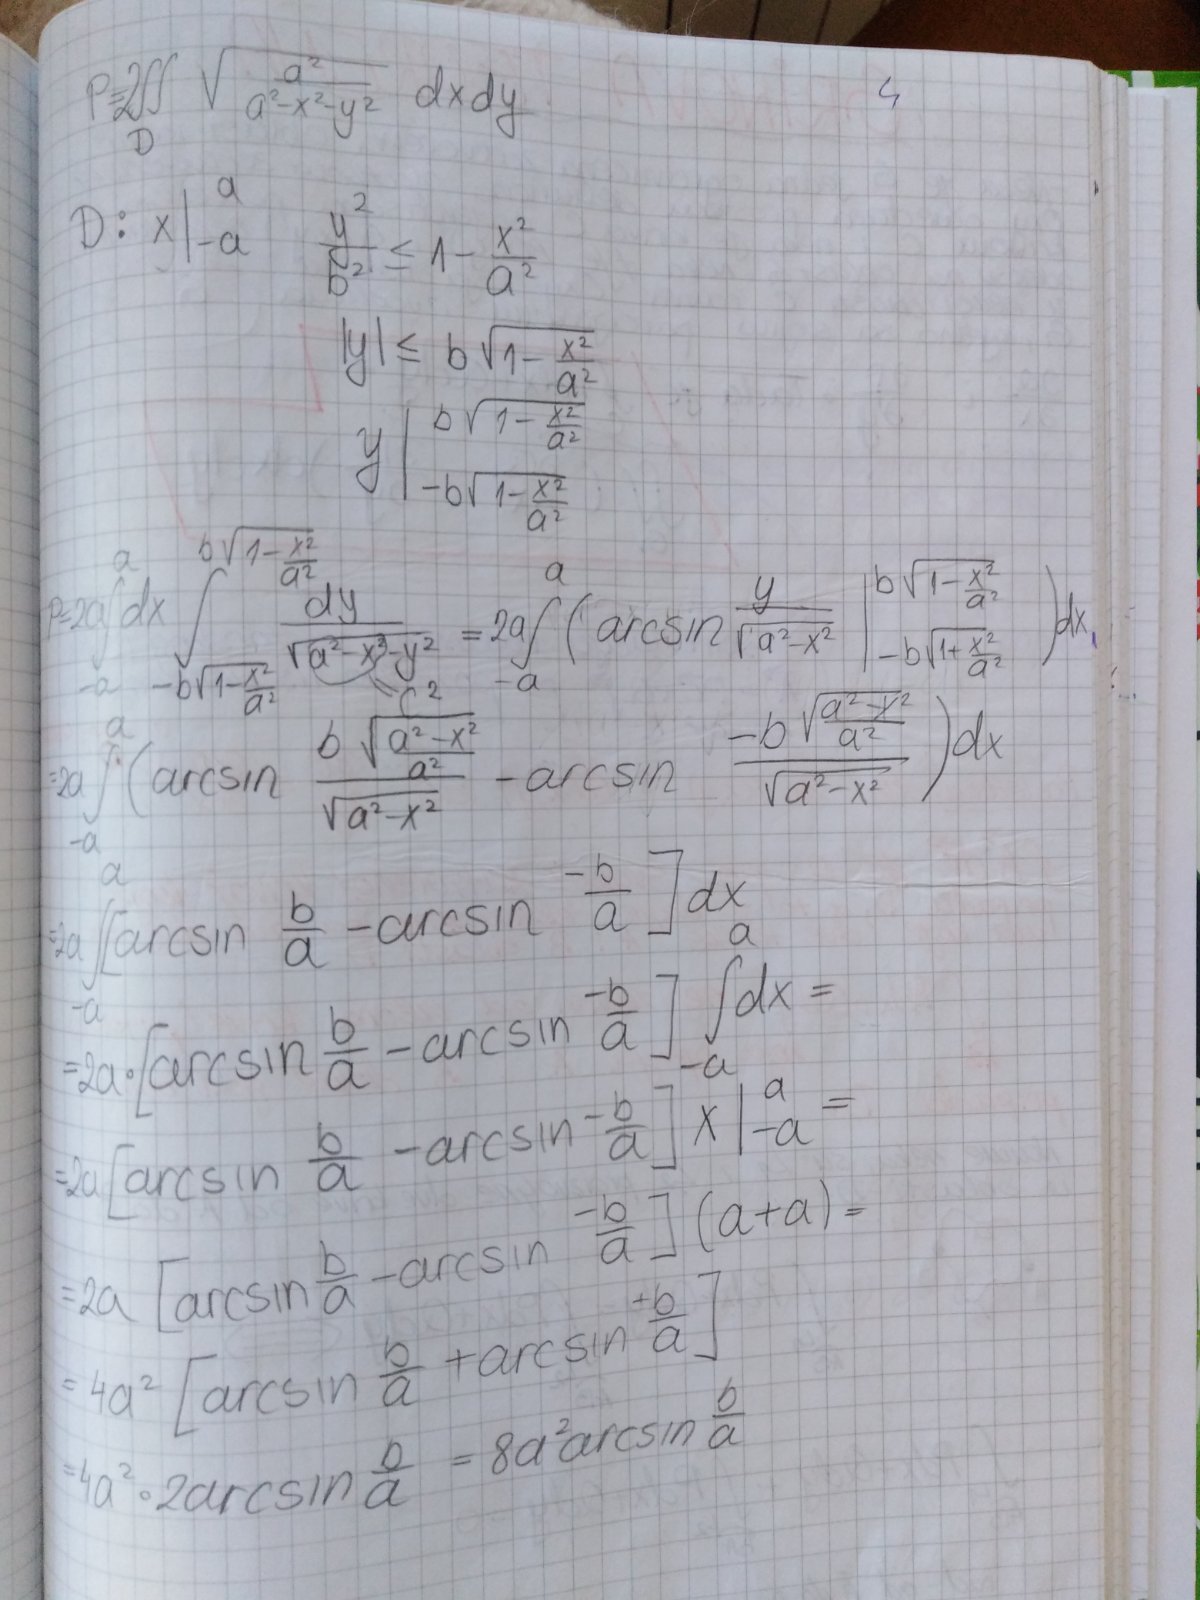 P=2∬_D √(a²/(a²-x²-y²)) dxdy
4
D: x |_{-a}^{a} y²/b² ≤ 1 - x²/a²
|y| ≤ b√(1 - x²/a²)
y |_{-b√(1-x²/a²)}^{b√(1-x²/a²)}
P=2a ∫_{-a}^{a} dx ∫_{-b√(1-x²/a²)}^{b√(1-x²/a²)} dy/√(a²-x²-y²) = 2a ∫_{-a}^{a} ( arcsin y/√(a²-x²) |_{-b√(1+x²/a²)}^{b√(1-x²/a²)} ) dx
= c²
=2a ∫_{-a}^{a} ( arcsin (b√((a²-x²)/a²))/√(a²-x²) - arcsin (-b√((a²-x²)/a²))/√(a²-x²) ) dx
=2a ∫_{-a}^{a} [ arcsin b/a - arcsin -b/a ] dx
=2a·[ arcsin b/a - arcsin -b/a ] ∫_{-a}^{a} dx =
=2a [ arcsin b/a - arcsin -b/a ] x |_{-a}^{a} =
=2a [ arcsin b/a - arcsin -b/a ] (a+a) =
=4a² [ arcsin b/a + arcsin +b/a ]
=4a²·2arcsin b/a = 8a² arcsin b/a